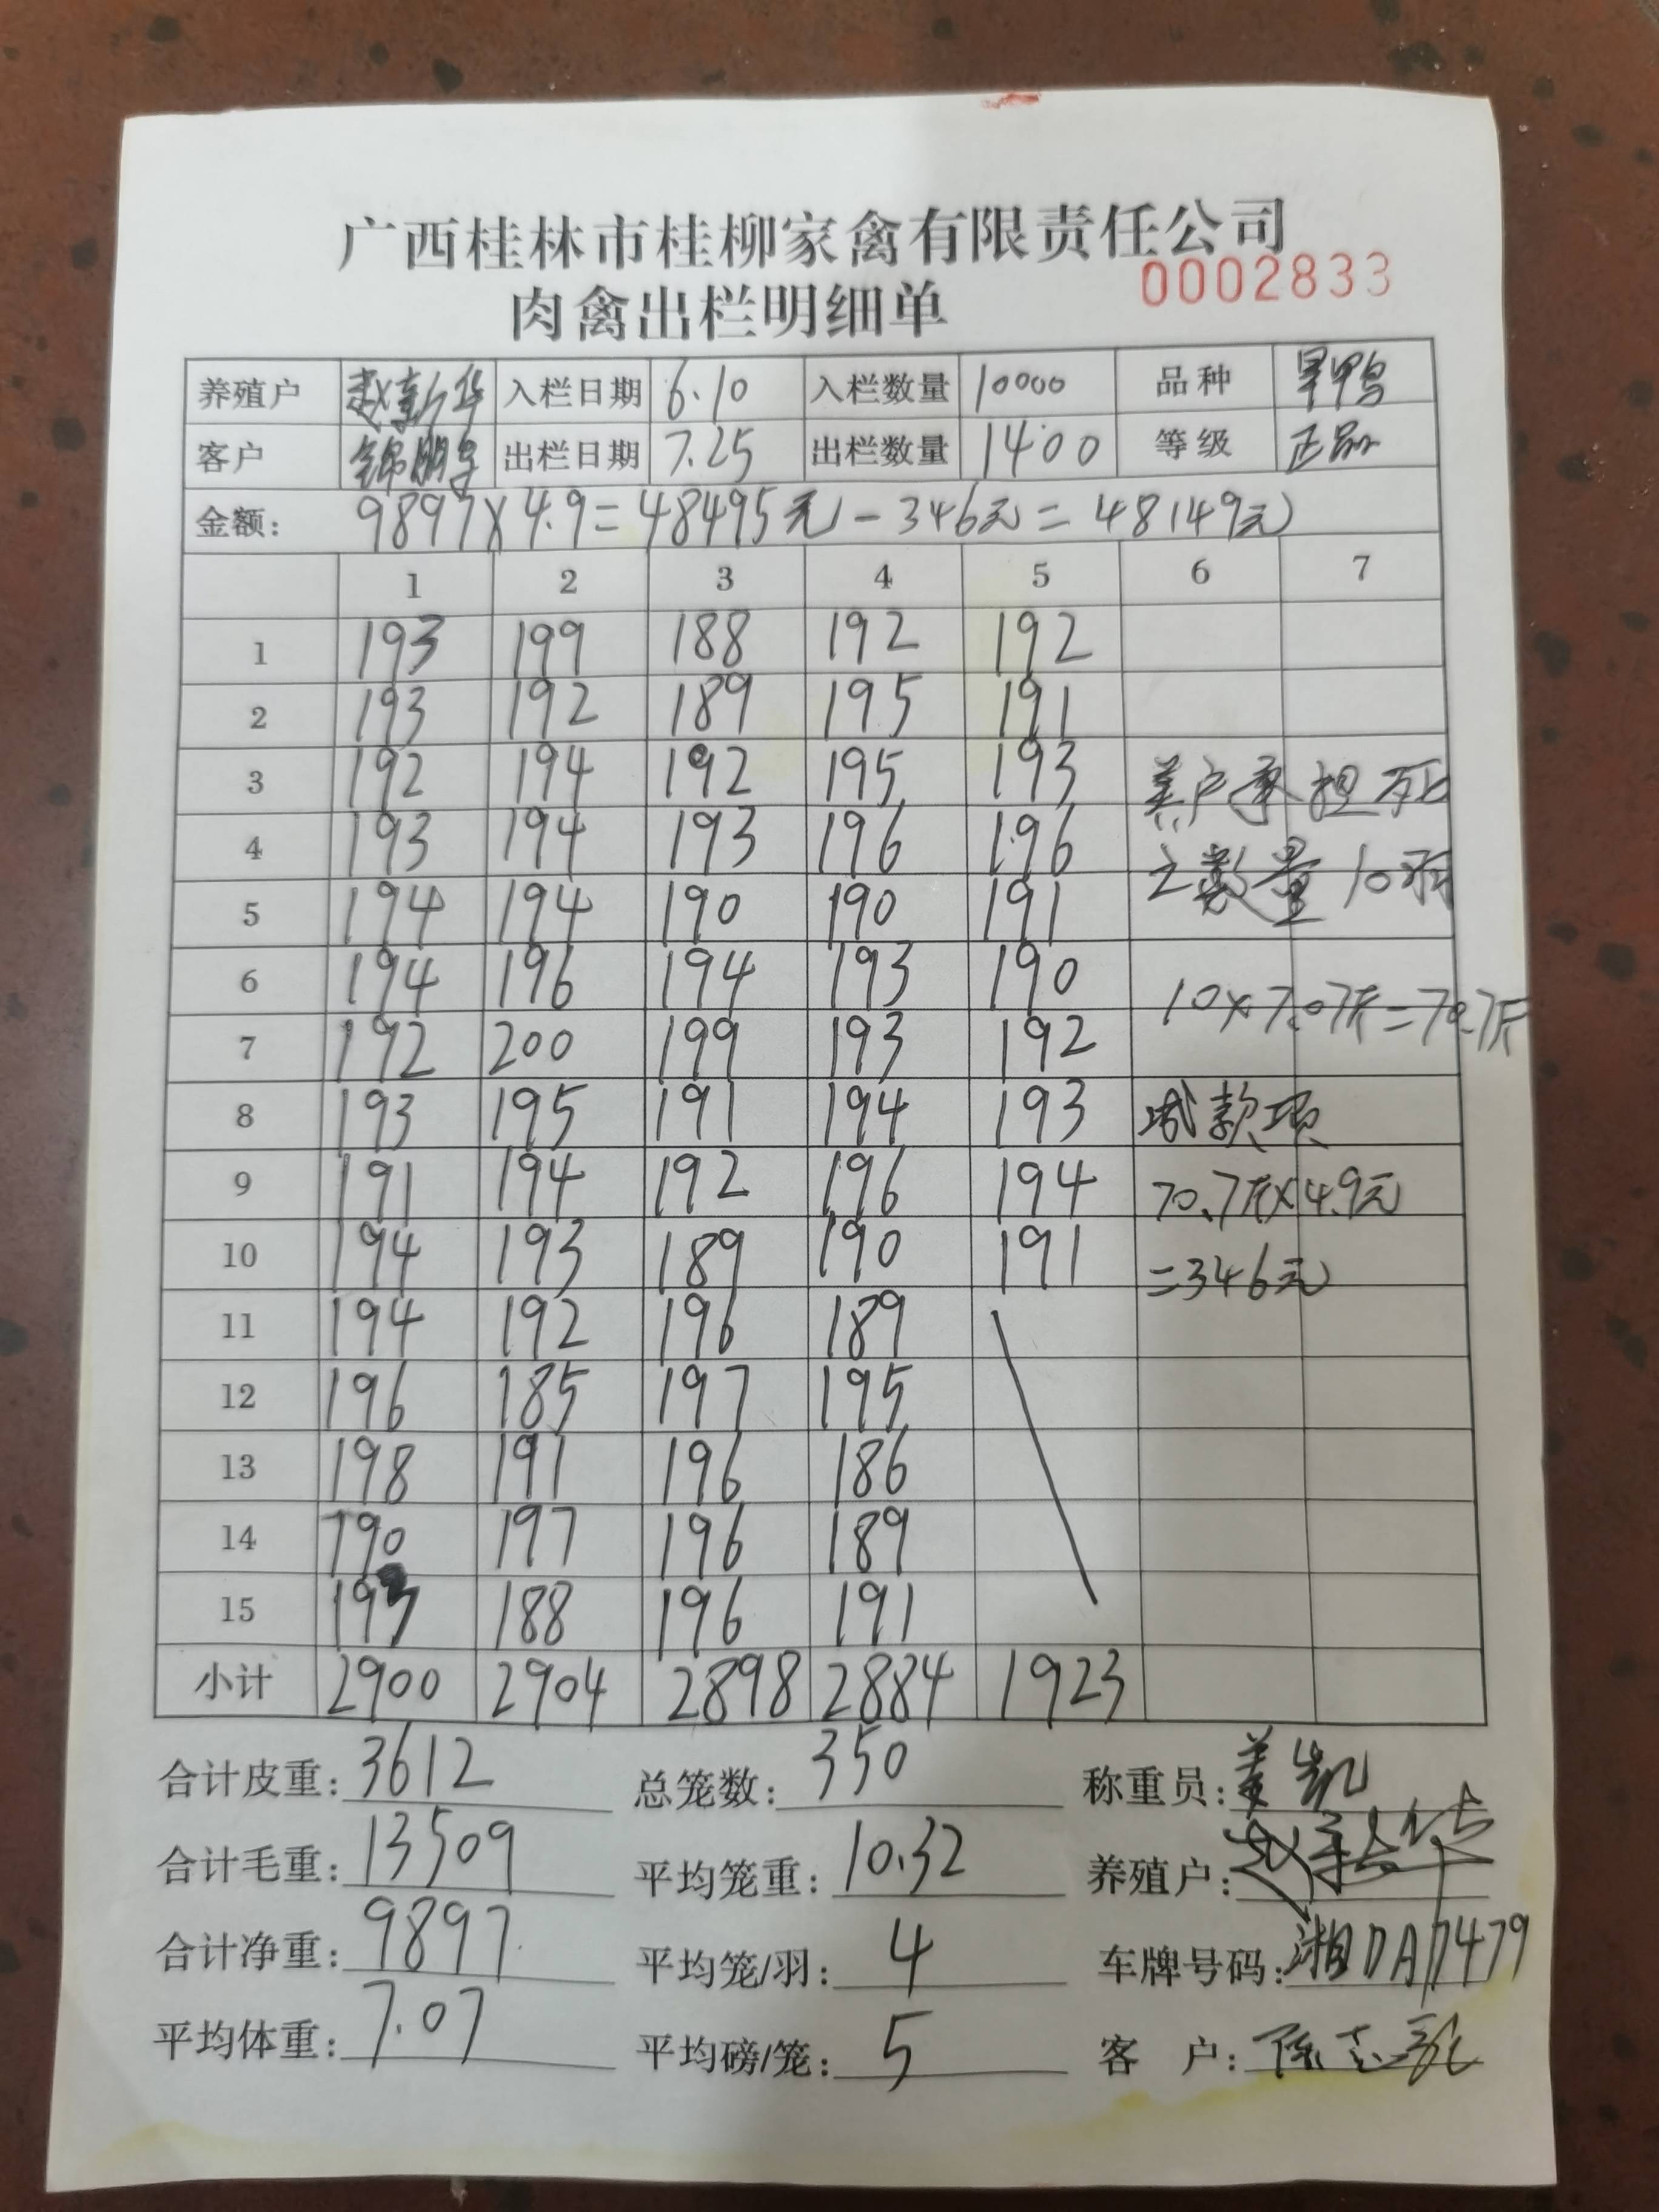 广西桂林市桂柳家禽有限责任公司
0002833
肉禽出栏明细单
养殖户 赵新华 入栏日期 6.10 入栏数量 10000 品种 旱鸭
客户 锦鹏 出栏日期 7.25 出栏数量 1400 等级 正品
金额: 9897×4.9=48495元-346元=48149元
1 2 3 4 5 6 7
1 193 199 188 192 192
2 193 192 189 195 191
3 192 194 192 195 193 养户承担死
4 193 194 193 196 196 亡数量10羽
5 194 194 190 190 191
6 194 196 194 193 190 10×7.07斤=70.7斤
7 192 200 199 193 192
8 193 195 191 194 193 减款项
9 191 194 192 196 194 70.7斤×4.9元
10 194 193 189 190 191 =346元
11 194 192 196 189
12 196 185 197 195
13 198 191 196 186
14 190 197 196 189
15 193 188 196 191
小计 2900 2904 2898 2884 1923
合计皮重: 3612 总笼数: 350 称重员: 姜凯
合计毛重: 13509 平均笼重: 10.32 养殖户: 赵新华
合计净重: 9897 平均笼/羽: 4 车牌号码: 湘DA7479
平均体重: 7.07 平均磅/笼: 5 客 户: 陈志